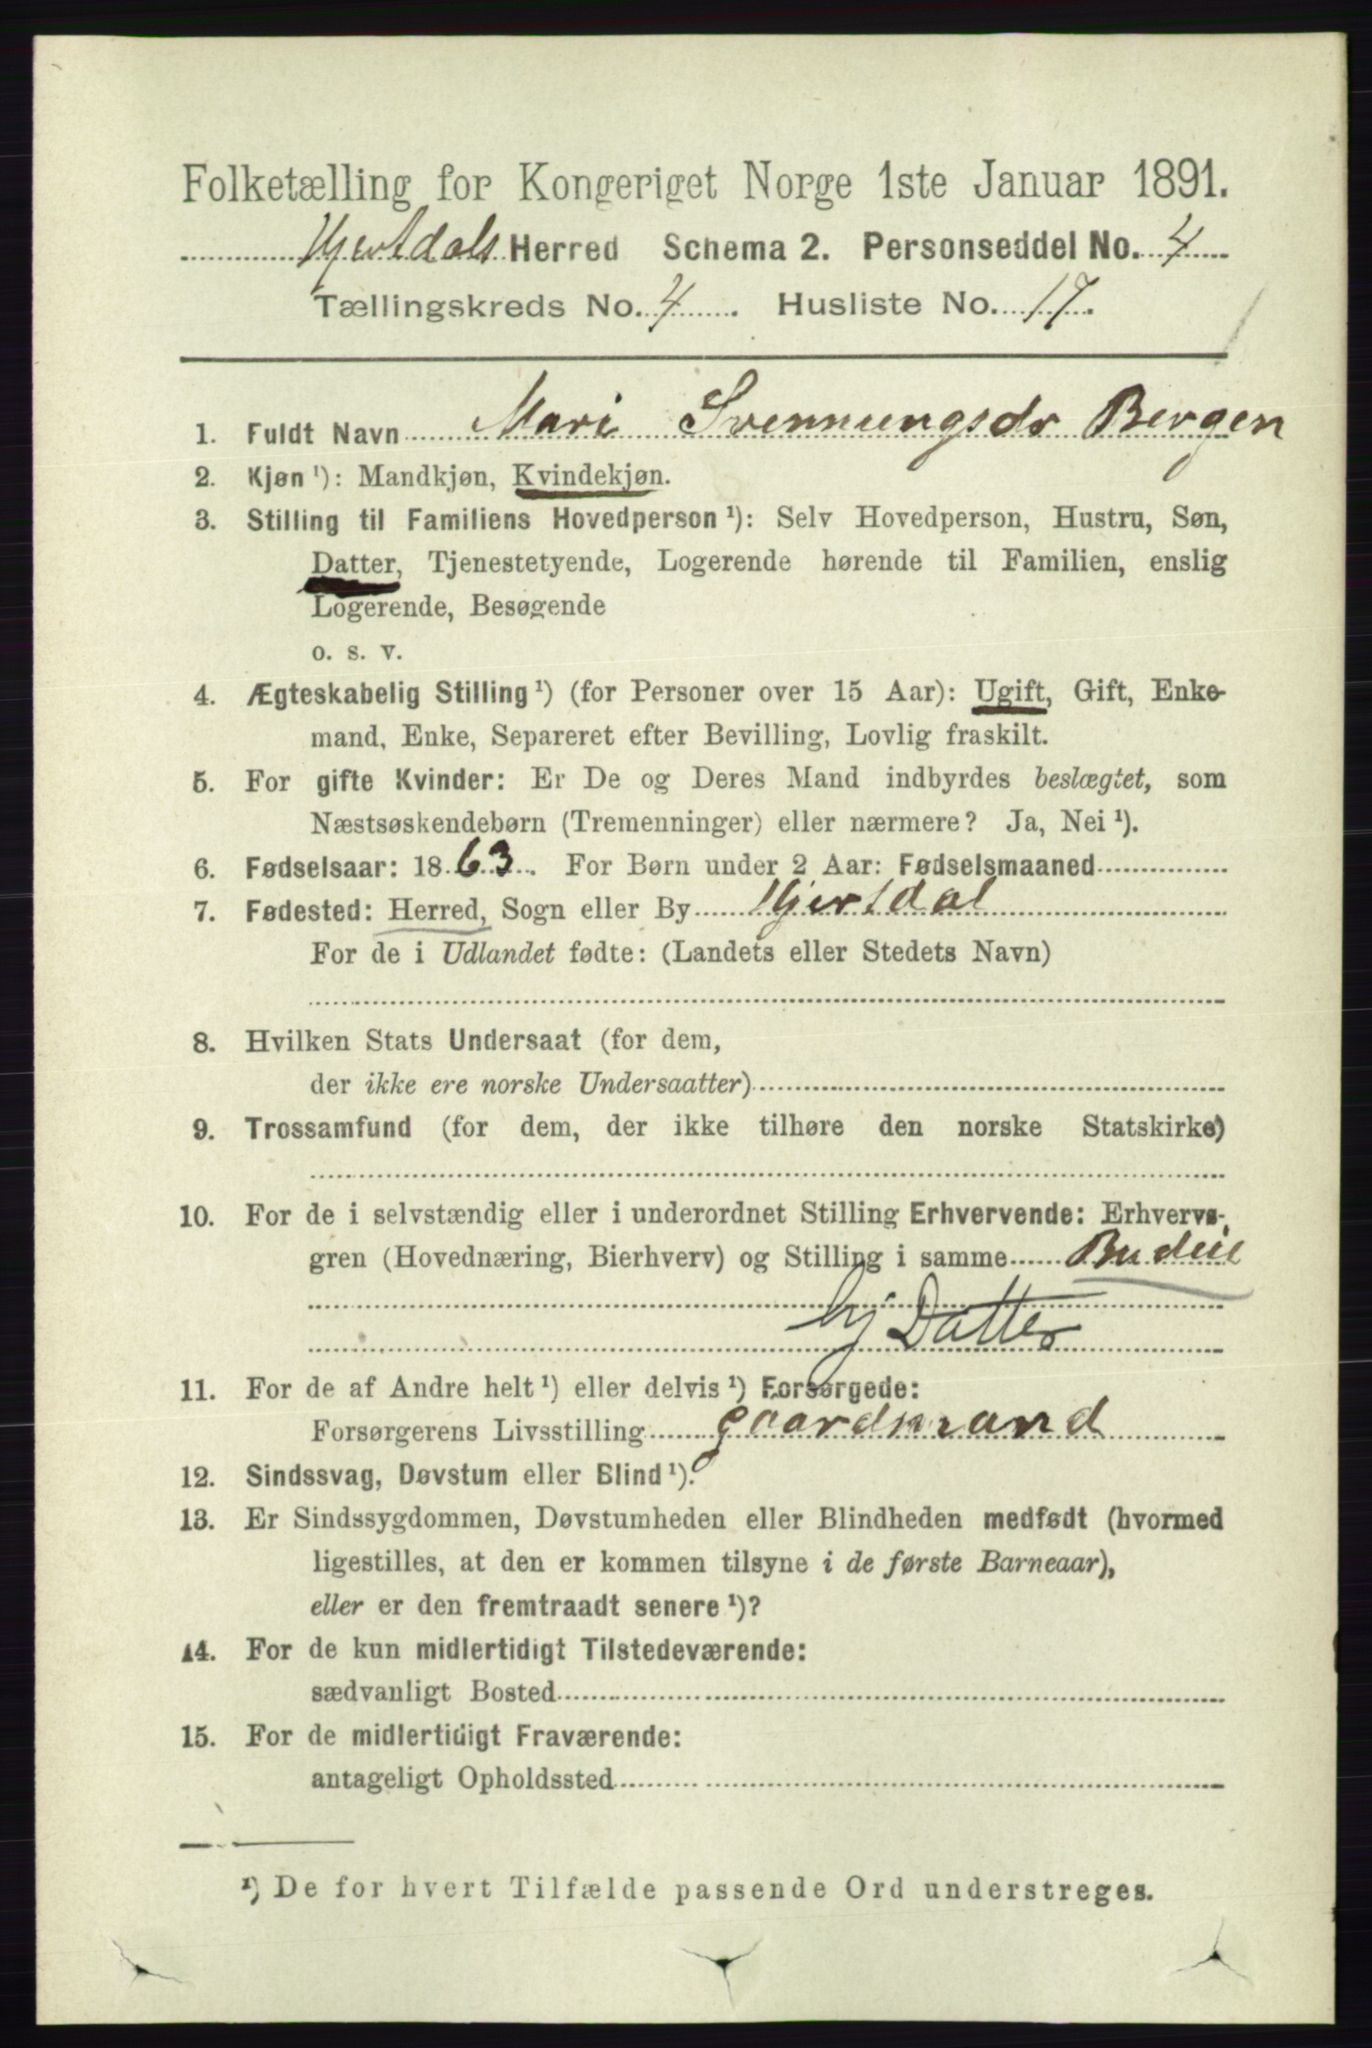 Folketælling for Kongeriget Norge 1ste Januar 1891.
Hjertdals Herred Schema 2. Personseddel No. 4
Tællingskreds No. 4. Husliste No. 17.
1. Fuldt Navn Mari Svennungsdr Bergen
2. Kjøn ¹): Mandkjøn, Kvindekjøn.
3. Stilling til Familiens Hovedperson ¹): Selv Hovedperson, Hustru, Søn,
Datter, Tjenestetyende, Logerende hørende til Familien, enslig
Logerende, Besøgende
o. s. v.
4. Ægteskabelig Stilling ¹) (for Personer over 15 Aar): Ugift, Gift, Enke-
mand, Enke, Separeret efter Bevilling, Lovlig fraskilt.
5. For gifte Kvinder: Er De og Deres Mand indbyrdes beslægtet, som
Næstsøskendebørn (Tremenninger) eller nærmere? Ja, Nei ¹).
6. Fødselsaar: 1863. For Børn under 2 Aar: Fødselsmaaned
7. Fødested: Herred, Sogn eller By Hjertdal
For de i Udlandet fødte: (Landets eller Stedets Navn)
8. Hvilken Stats Undersaat (for dem,
der ikke ere norske Undersaatter)
9. Trossamfund (for dem, der ikke tilhøre den norske Statskirke)
10. For de i selvstændig eller i underordnet Stilling Erhvervende: Erhvervs-
gren (Hovednæring, Bierhverv) og Stilling i samme Budeie
hj. Datter
11. For de af Andre helt ¹) eller delvis ¹) Forsørgede:
Forsørgerens Livsstilling gaardmand
12. Sindssvag, Døvstum eller Blind ¹).
13. Er Sindssygdommen, Døvstumheden eller Blindheden medfødt (hvormed
ligestilles, at den er kommen tilsyne i de første Barneaar),
eller er den fremtraadt senere ¹)?
14. For de kun midlertidigt Tilstedeværende:
sædvanligt Bosted
15. For de midlertidigt Fraværende:
antageligt Opholdssted
¹) De for hvert Tilfælde passende Ord understreges.